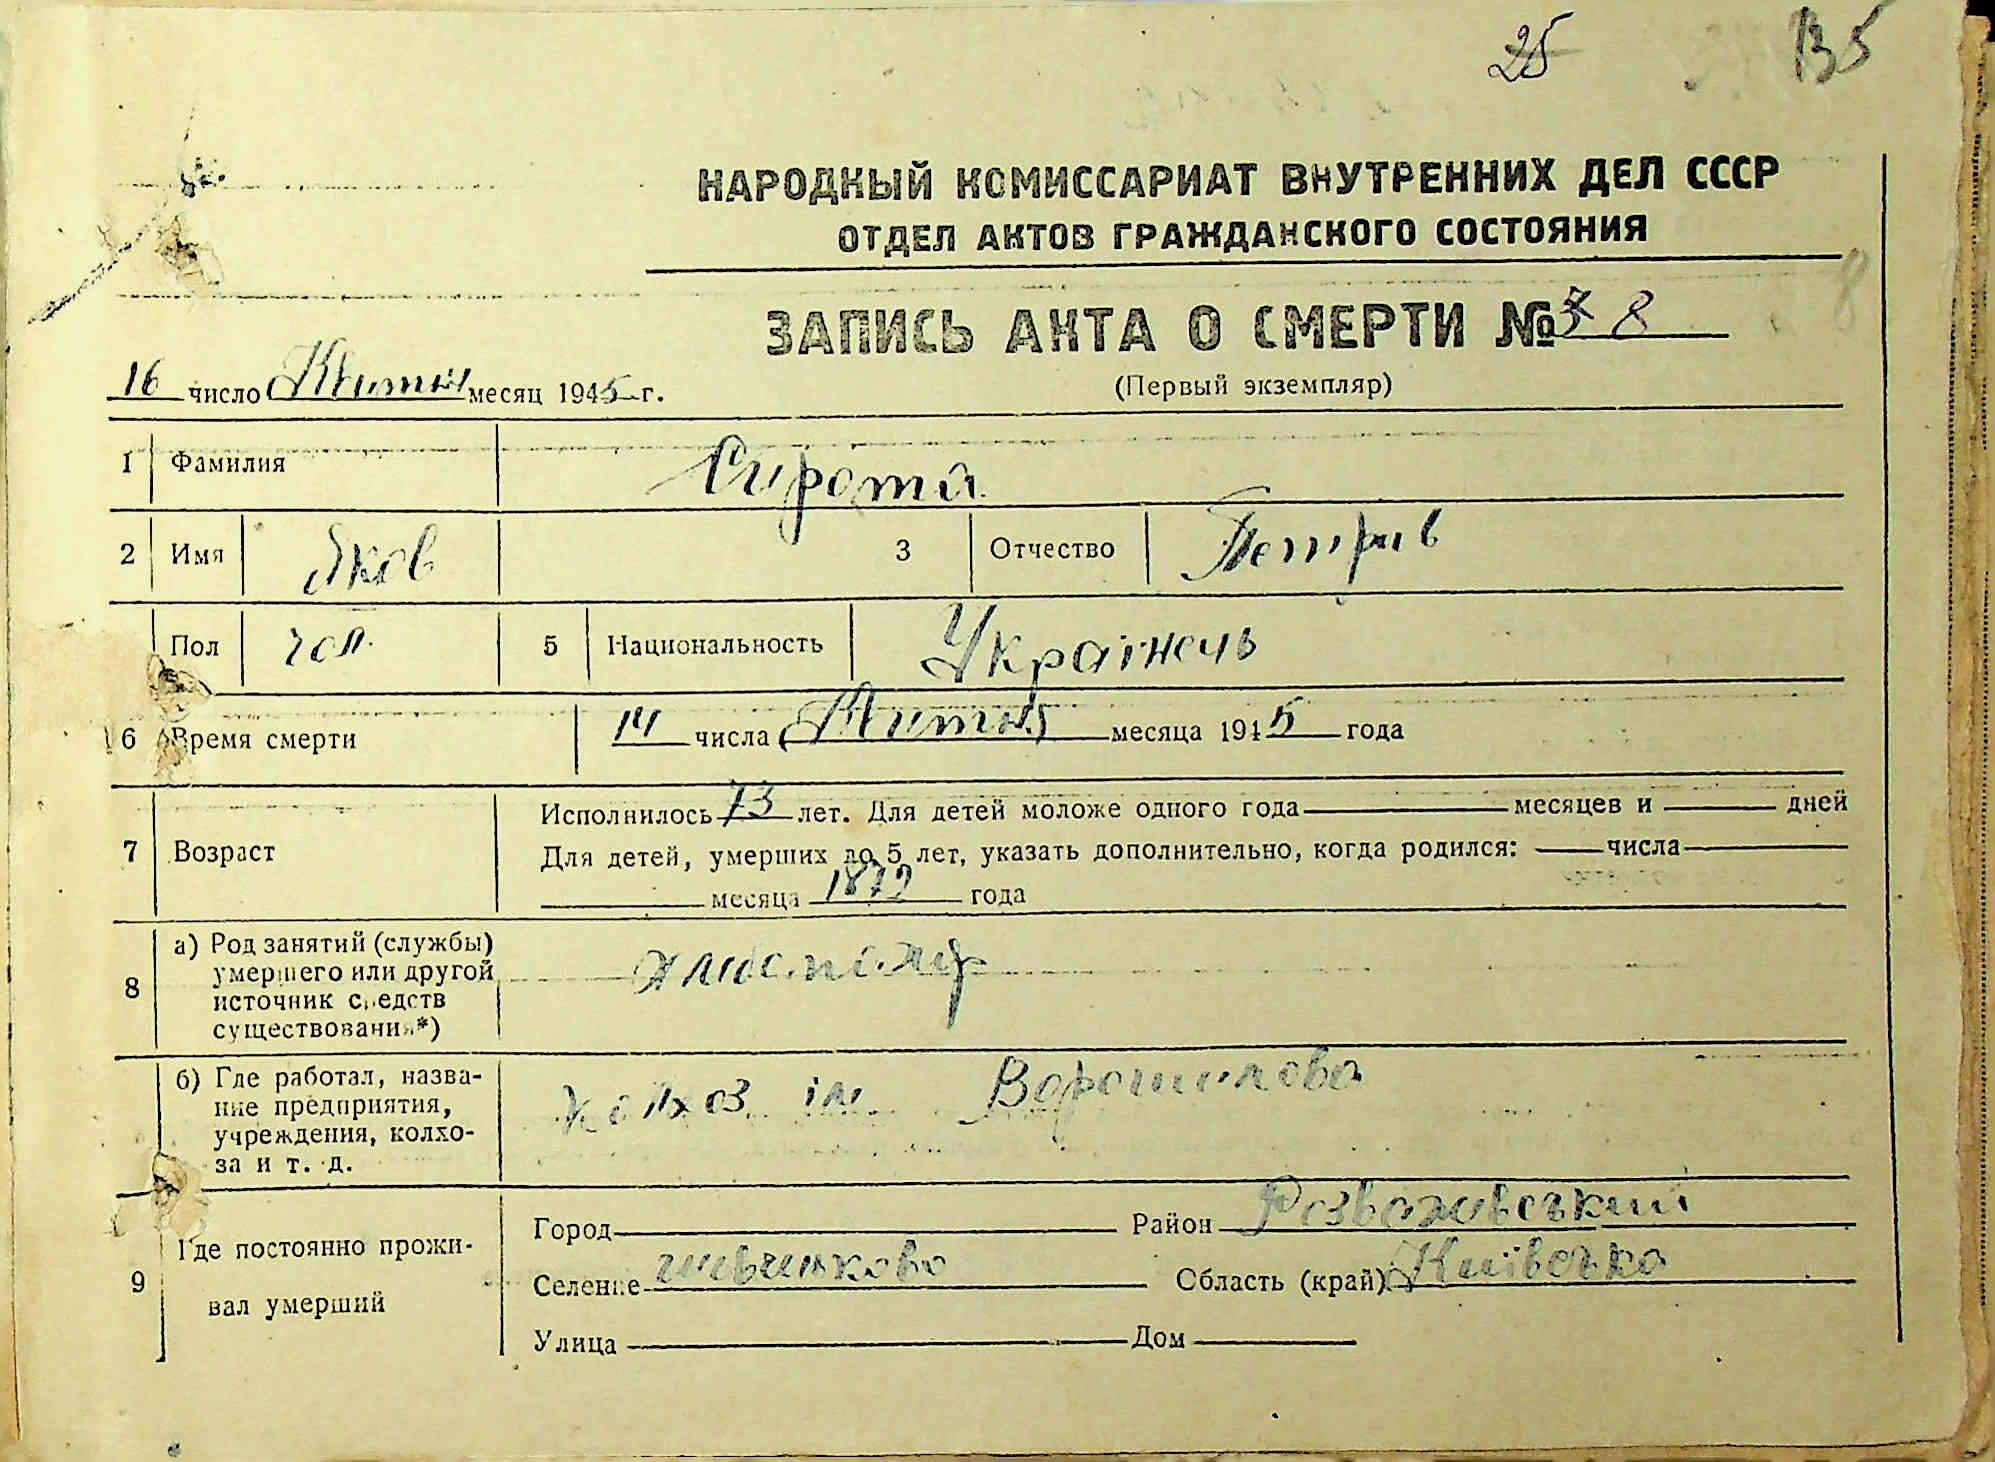 25 135
НАРОДНЫЙ КОМИССАРИАТ ВНУТРЕННИХ ДЕЛ СССР
ОТДЕЛ АКТОВ ГРАЖДАНСКОГО СОСТОЯНИЯ
ЗАПИСЬ АКТА О СМЕРТИ № 8
(Первый экземпляр)
16 число Квитня месяц 1945 г.
1 Фамилия Сирота
2 Имя Яков 3 Отчество Петрив
Пол чол. 5 Национальность Українець
6 Время смерти 14 числа Квитня месяца 1945 года
7 Возраст Исполнилось 73 лет. Для детей моложе одного года месяцев и дней
Для детей, умерших до 5 лет, указать дополнительно, когда родился: числа
месяца 1872 года
8 а) Род занятий (службы)
умершего или другой
источник средств
существования*)
б) Где работал, назва-
ние предприятия,
учреждения, колхо-
за и т. д.
колхоз ім Ворошилова
9 Где постоянно прожи-
вал умерший
Город Район Розважівський
Селение шевченково Область (край) Київська
Улица Дом